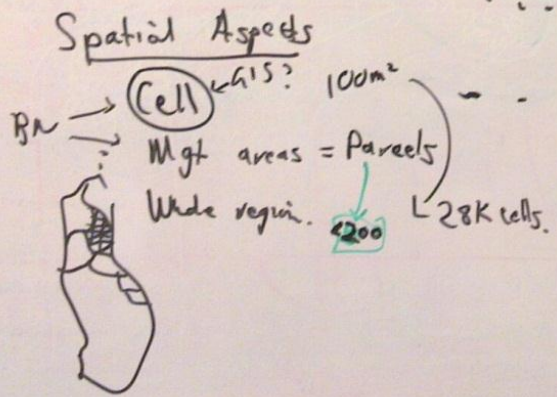 Spatial Aspects
Cell ← GIS? 100m²
BN
Mgt areas = Parcels
Whole region. <200 28K cells.